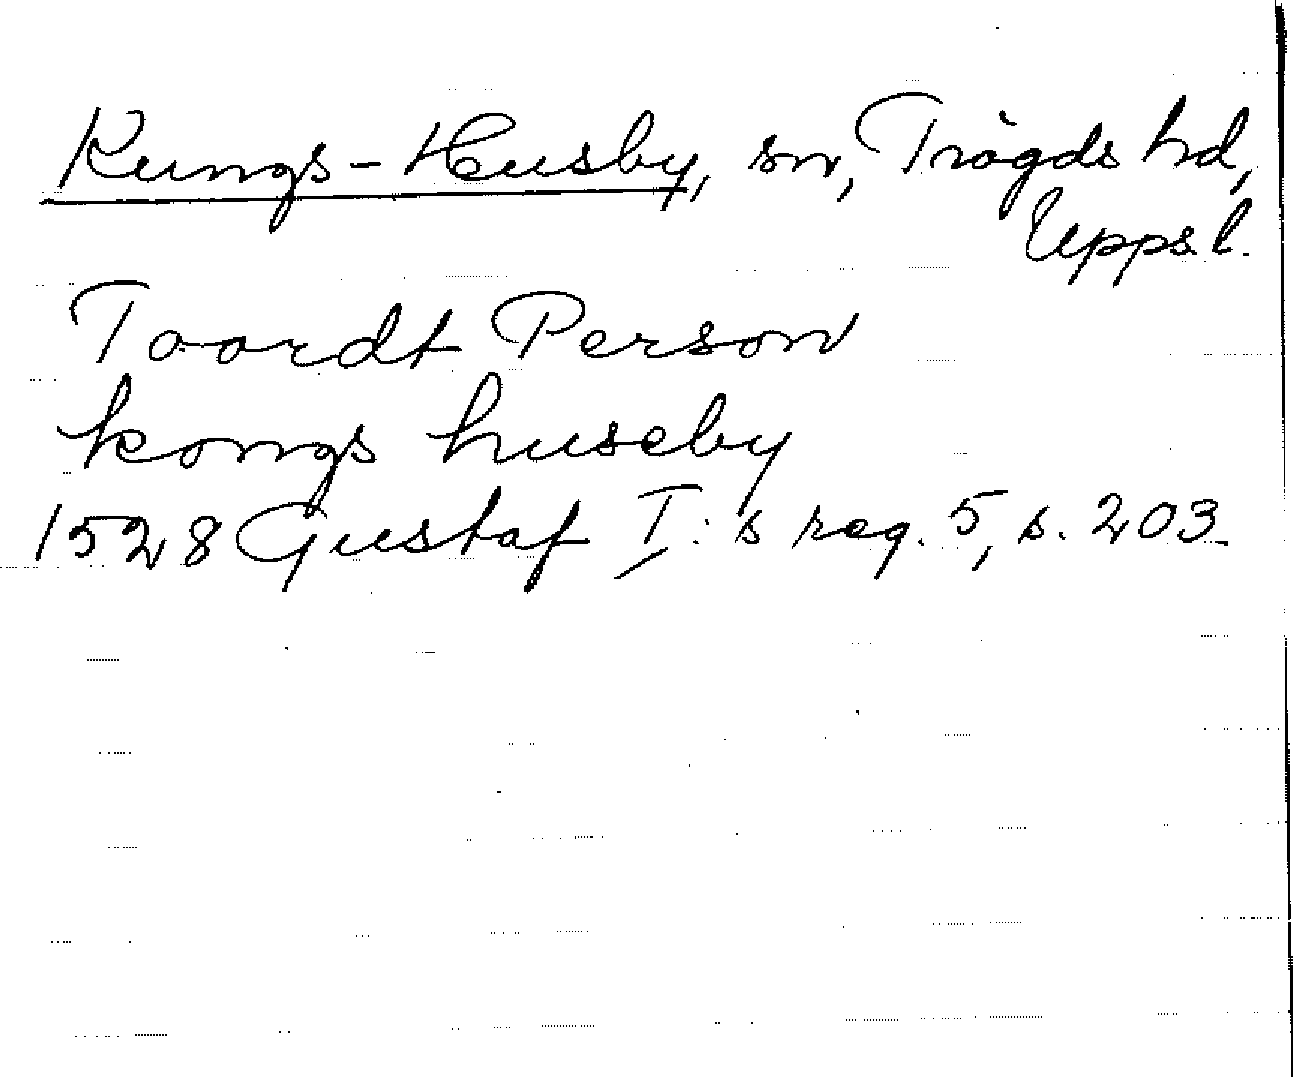 Kungs-Husby, sn, Trögds hd,
Upps. l.
Taardt Person
kongs huseby
1528 Gustaf I:s reg. 5, s. 203.